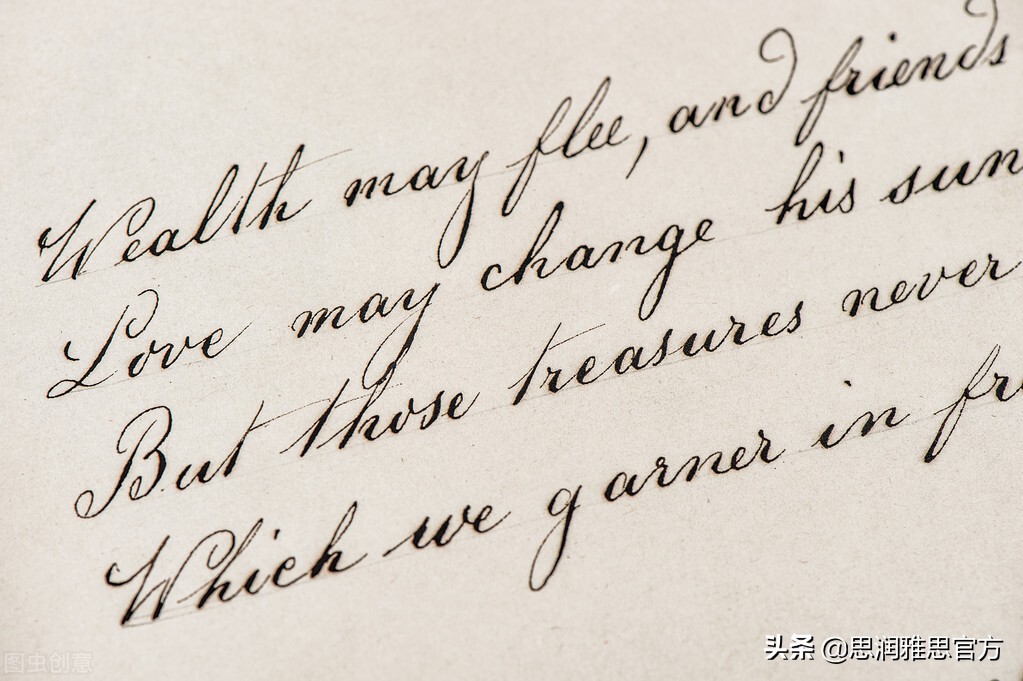 Wealth may flee, and friends
Love may change his sun
But those treasures never
Which we garner in fr
图虫创意
头条 @思润雅思官方